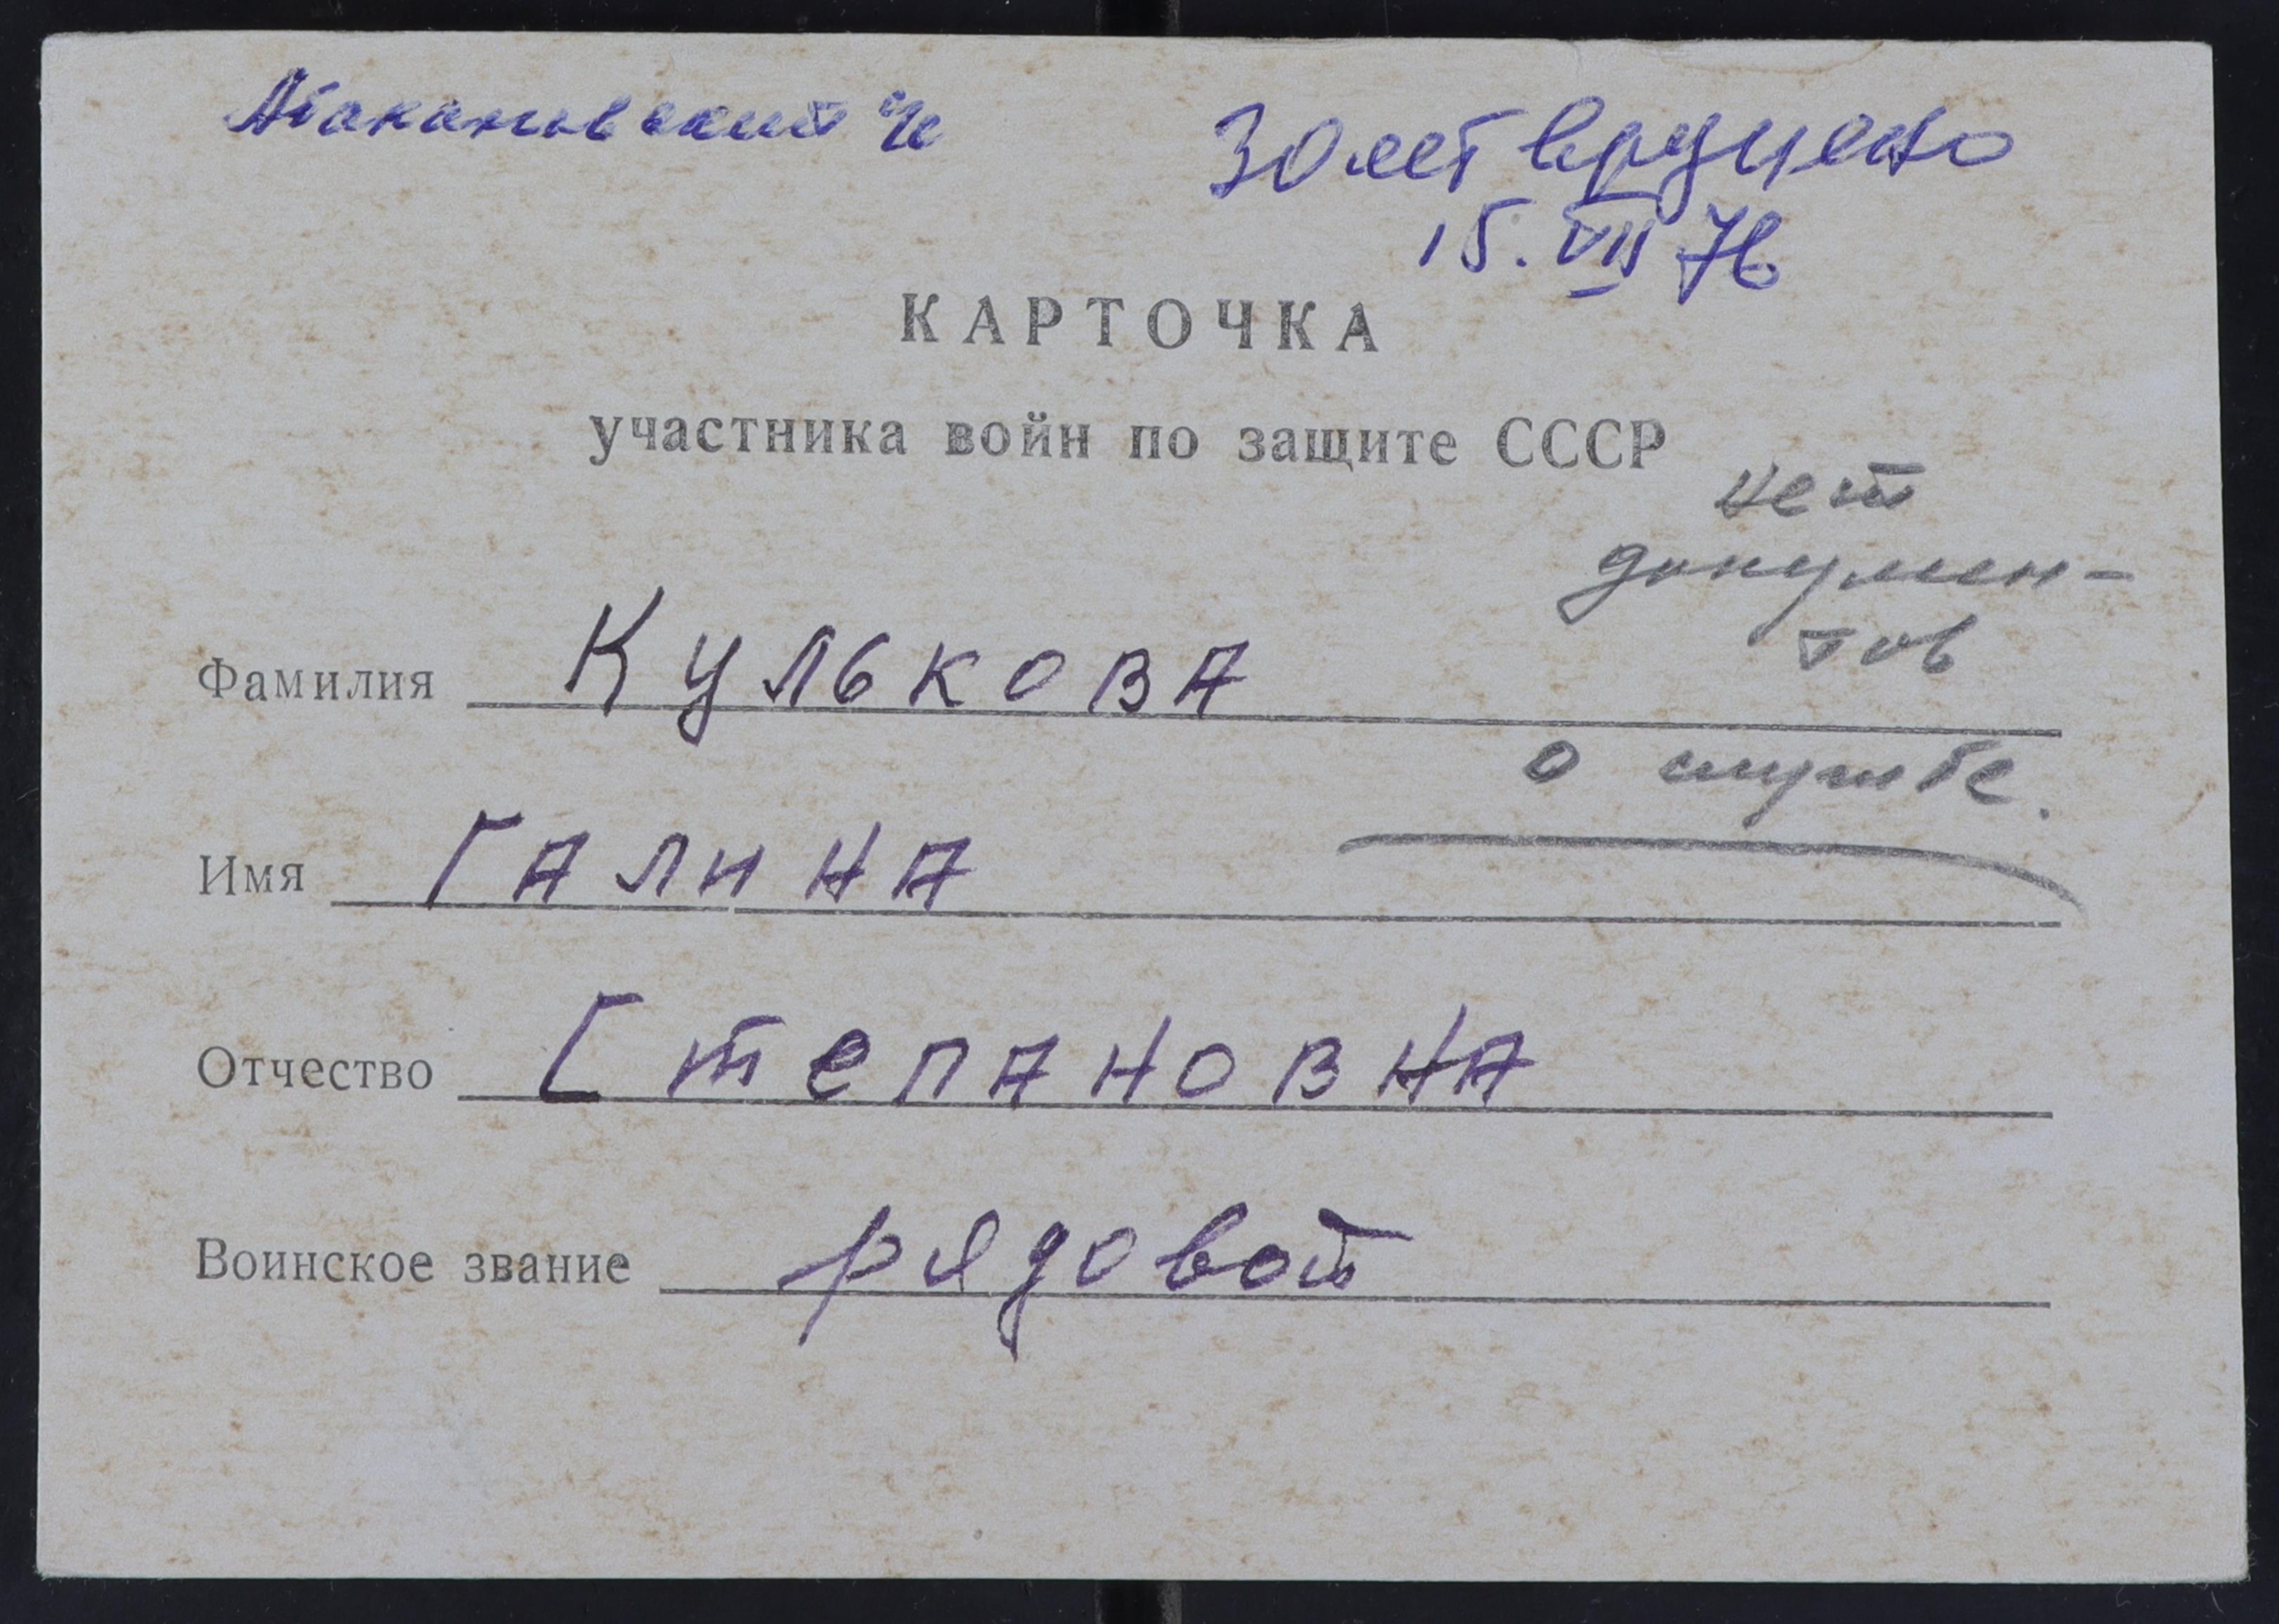 30 лет вручено
15. VII 76
КАРТОЧКА
участника войн по защите СССР
нет
докумен-
тов
о службе.
Фамилия Кулькова
Имя Галина
Отчество Степановна
Воинское звание рядовой